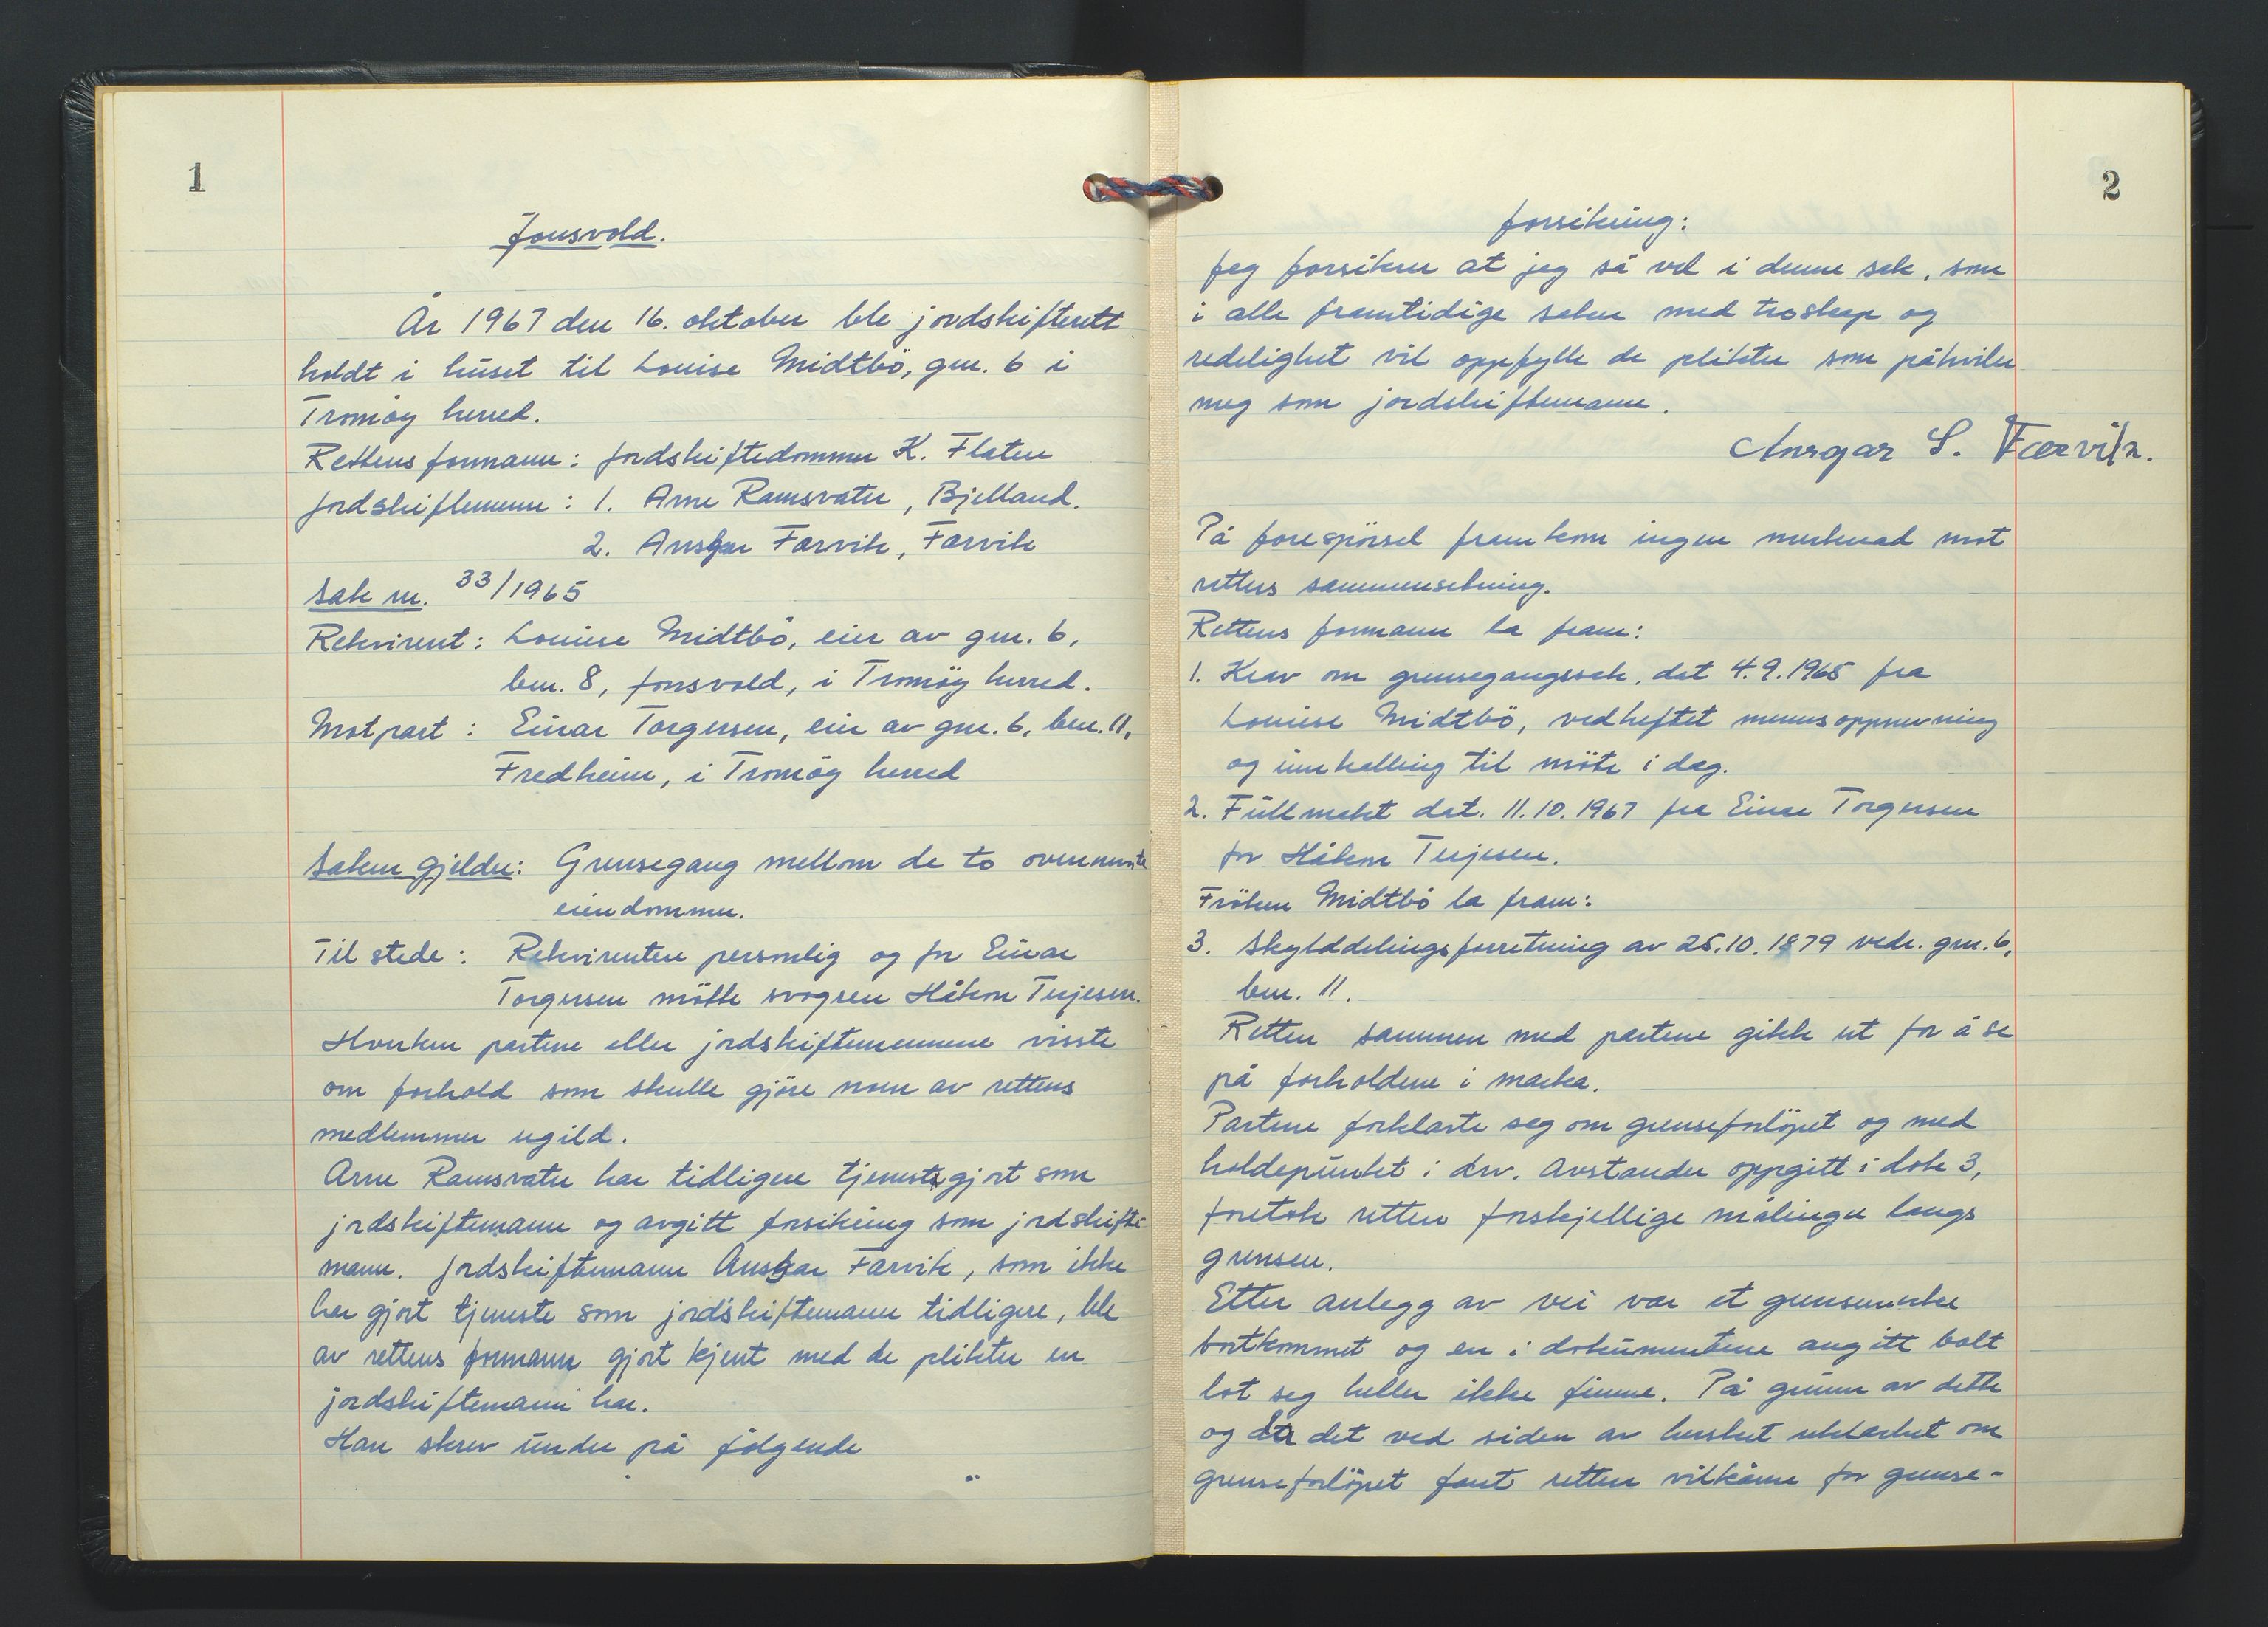 1
Jonsvold.
År 1967 den 16. oktober ble jordskifterett
holdt i huset til Louise Midtbö, gnr. 6 i
Tromöy herred.
Rettens formann: Jordskiftedommer K. Flaten
Jordskiftemenn: 1. Arne Ramsvatn, Bjelland.
2. Ansgar Færvik, Færvik
Sak nr. 33/1965
Rekvirent: Louise Midtbö, eier av gnr. 6,
bnr. 8, Jonsvold, i Tromöy herred.
Motpart: Einar Torgersen, eier av gnr. 6, bnr. 11,
Fredheim, i Tromöy herred
Saken gjelder: Grensegang mellom de to ovennevnte
eiendommer.
Til stede: Rekvirenten personlig og for Einar
Torgersen mötte svogeren Håkon Terjesen.
Hverken partene eller jordskiftemennene visste
om forhold som skulle gjöre noen av rettens
medlemmer ugild.
Arne Ramsvatn har tidligere tjenestegjort som
jordskiftemann og avgitt forsikring som jordskifte-
mann. Jordskiftemann Ansgar Færvik, som ikke
har gjort tjeneste som jordskiftemann tidligere, ble
av rettens formann gjort kjent med de plikter en
jordskiftemann har.
Han skrev under på fölgende
2
forsikring:
Jeg forsikrer at jeg så vel i denne sak, som
i alle framtidige saker med troskap og
redelighet vil oppfylle de plikter som påhviler
meg som jordskiftemann.
Ansgar S. Færvik.
På forespörsel framkom ingen merknad mot
rettens sammensetning.
Rettens formann la fram:
1. Krav om grensegangssak, dat 4.9.1965 fra
Louise Midtbö, vedheftet mennsoppnevning
og innkalling til möte i dag.
2. Fullmakt dat. 11.10.1967 fra Einar Torgersen
for Håkon Terjesen.
Fröken Midtbö la fram:
3. Skylddelingsforretning av 25.10.1879 vedr. gnr. 6,
bnr. 11.
Retten sammen med partene gikk ut for å se
på forholdene i marka.
Partene forklarte seg om grenseforlöpet og med
holdepunkt i div. avstander oppgitt i dok 3,
foretok retten forskjellige målinger langs
grensen.
Etter anlegg av vei var et grensemerke
bortkommet og en i dokumentene angitt bolt
lot seg heller ikke finne. På grunn av dette
og da det ved siden av hersket uklarhet om
grenseforlöpet fant retten vilkårene for grense-